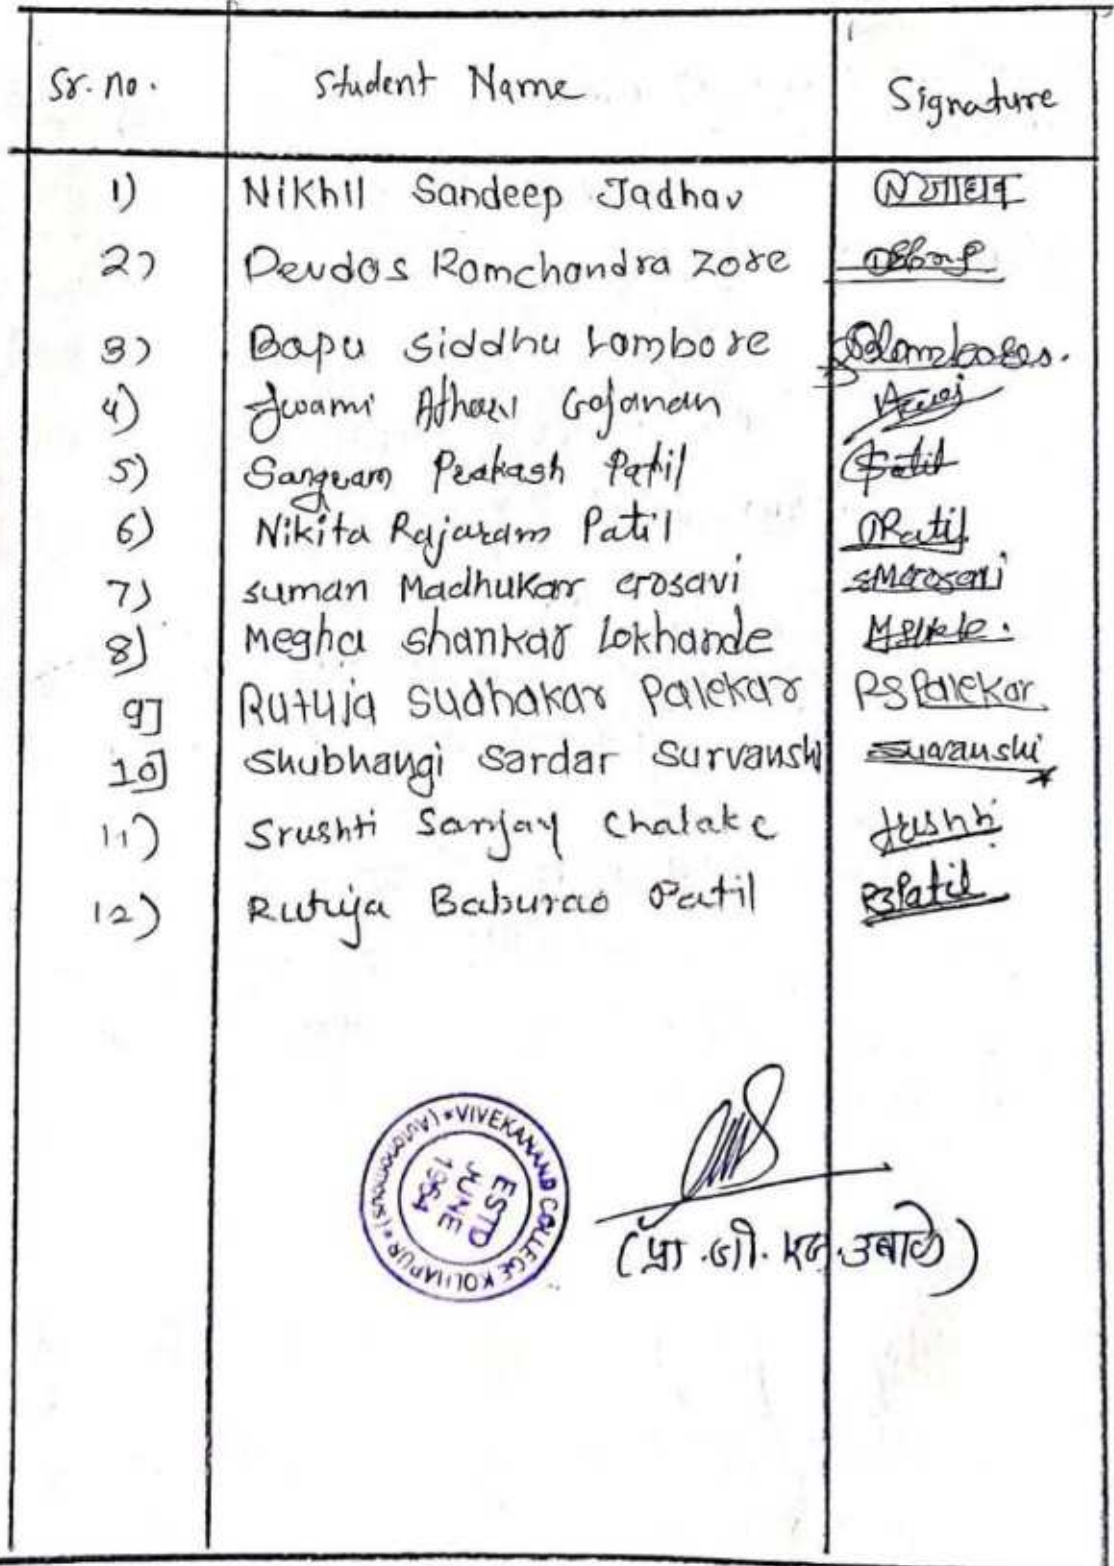 Sr. no. Student Name Signature
1) Nikhil Sandeep Jadhav N जाधव
2) Devdas Ramchandra Zore
3) Bapu Siddhu Lambore
4) Swami Atharv Gajanan
5) Sangram Prakash Patil Patil
6) Nikita Rajaram Patil NRPatil
7) suman Madhukar Gosavi SMGosavi
8) Megha Shankar Lokhande
9] Rutuja Sudhakar Palekar RSPalekar
10] Shubhangi Sardar Survanshi Suvanshi
11) Srushti Sanjay Chalake
12) Rutuja Baburao Patil RBPatil
VIVEKANAND COLLEGE KOLHAPUR (Autonomous)
ESTD
JUNE
1964
(प्रा. जी. एन. उबाळे)